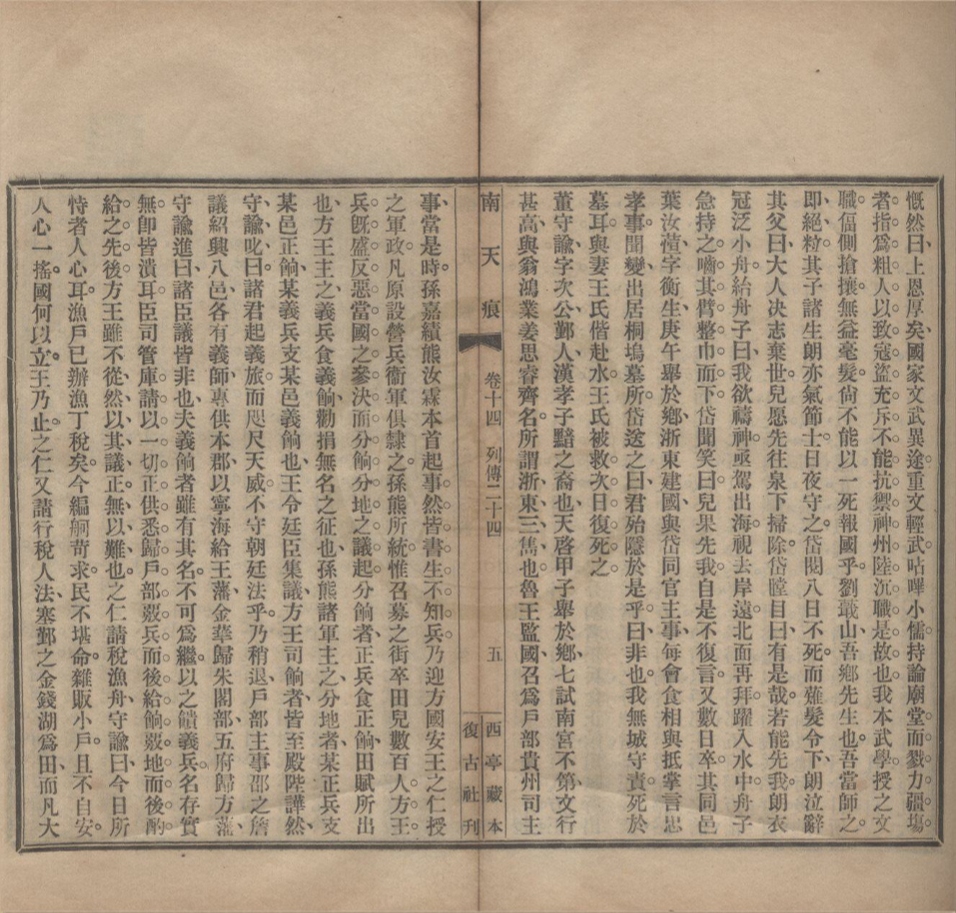 慨然曰上恩厚矣國家文武異途重文輕武呫嗶小儒持論廟堂而戮力疆場
者指爲粗人以致寇盜充斥不能抗禦神州陸沉職是故也我本武學授之文
職偪側搶攘無益毫髮尙不能以一死報國乎劉蕺山吾鄉先生也吾當師之
即絕粒其子諸生朗亦氣節士日夜守之岱閱八日不死而薙髮令下朗泣辭
其父曰大人决志棄世兒愿先往泉下掃除岱瞠目曰有是哉若能先我朗衣
冠泛小舟紿舟子曰我欲禱神亟駕出海視去岸遠北而再拜躍入水中舟子
急持之嚙其臂整巾而下岱聞笑曰兒果先我自是不復言又數日卒其同邑
葉汝𦶎字衡生庚午舉於鄉浙東建國與岱同官主事每會食相與抵掌言忠
孝事聞變出居桐塢墓所岱送之曰君殆隱於是乎曰非也我無城守責死於
墓耳與妻王氏偕赴水王氏被救次日復死之
董守諭字次公鄞人漢孝子黯之裔也天啓甲子舉於鄉七試南宮不第文行
甚高與翁鴻業姜思睿齊名所謂浙東三雋也魯王監國召爲戶部貴州司主
南天痕 卷十四 列傳二十四 五 西亭藏本 復古社刊
事當是時孫嘉績熊汝霖本首起事然皆書生不知兵乃迎方國安王之仁授
之軍政凡原設營兵衞軍俱隸之孫熊所統惟召募之街卒田兒數百人方王
兵旣盛反惡當國之參決而分餉分地之議起分餉者正兵食正餉田賦所出
也方王主之義兵食義餉勸捐無名之征也孫熊諸軍主之分地者某正兵支
某邑正餉某義兵支某邑義餉也王令廷臣集議方王司餉者皆至殿陛譁然
守諭叱曰諸君起義旅而咫尺天威不守朝廷法乎乃稍退戶部主事邵之詹
議紹興八邑各有義師專供本郡以寧海給王藩金華歸朱閣部五府歸方藩
守諭進曰諸臣議皆非也夫義餉者雖有其名不可爲繼以之饋義兵名存實
無卽皆潰耳臣司管庫請以一切正供悉歸戶部覈兵而後給餉覈地而後酌
給之先後方王雖不從然以其議正無以難也之仁請稅漁舟守諭曰今日所
恃者人心耳漁戶已辦漁丁稅矣今編舸苛求民不堪命雜販小戶且不自安
人心一搖國何以立王乃止之仁又請行稅人法塞鄞之金錢湖爲田而凡大